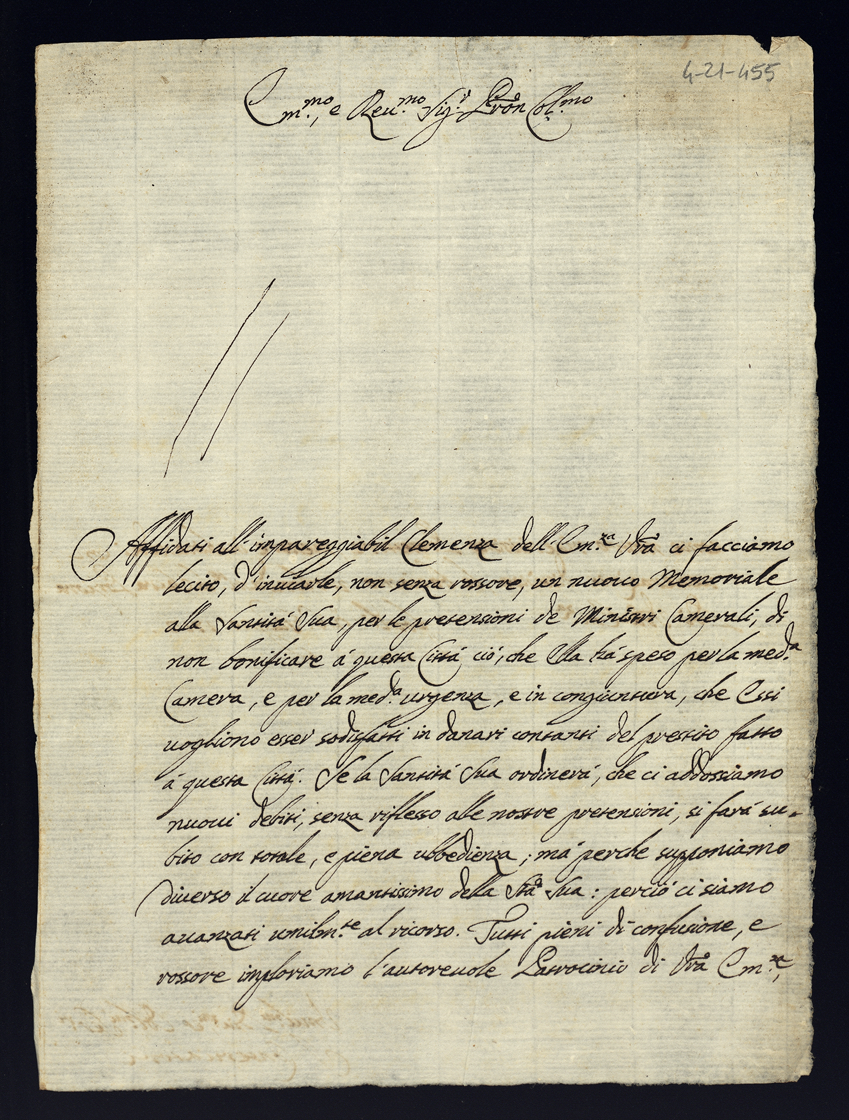 4-21-455
Em.mo, e Reu.mo Sig.r Pron Col.mo
Affidati all'impareggiabil Clemenza dell'Em.za Vra ci facciamo
lecito, d'inuiarle, non senza rossore, un nuouo Memoriale
alla Santità Sua, per le pretensioni de Ministri Camerali, di
non bonificare à questa Città ciò, che Ella hà speso per la med.a
Camera, e per la med.a urgenza, e in congiuntura, che Essi
uogliono esser sodisfatti in danari contanti del prestito fatto
à questa Città. Se la Santità Sua ordinerà, che ci addossiamo
nuoui debiti, senza riflesso alle nostre pretensioni, si farà su-
bito con totale, e piena ubbedienza; mà perche supponiamo
diverso il cuore amantissimo della Stà Sua: perciò ci siamo
auanzati umilm.te al ricorso. Tutti pieni di confusione, e
rossore imploriamo l'autoreuole Patrocinio di Vra Em.za,